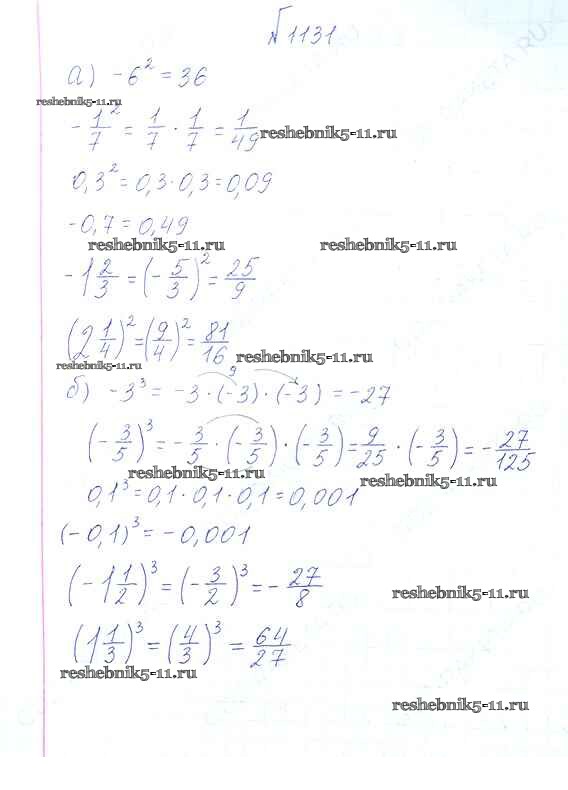 №1131
а) -6² = 36
reshebnik5-11.ru
-1/7² = 1/7 · 1/7 = 1/49
reshebnik5-11.ru
0,3² = 0,3 · 0,3 = 0,09
-0,7 = 0,49
reshebnik5-11.ru reshebnik5-11.ru
-1 2/3 = (-5/3)² = 25/9
(2 1/4)² = (9/4)² = 81/16
reshebnik5-11.ru
reshebnik5-11.ru
9
б) -3³ = -3 · (-3) · (-3) = -27
(-3/5)³ = -3/5 · (-3/5) · (-3/5) = 9/25 · (-3/5) = -27/125
reshebnik5-11.ru reshebnik5-11.ru
0,1³ = 0,1 · 0,1 · 0,1 = 0,001
(-0,1)³ = -0,001
(-1 1/2)³ = (-3/2)³ = -27/8
reshebnik5-11.ru
(1 1/3)³ = (4/3)³ = 64/27
reshebnik5-11.ru
reshebnik5-11.ru